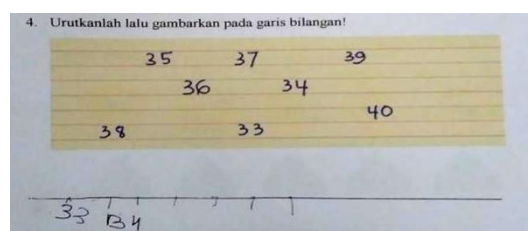 4. Urutkanlah lalu gambarkan pada garis bilangan!
35 37 39
36 34
40
38 33
33 34